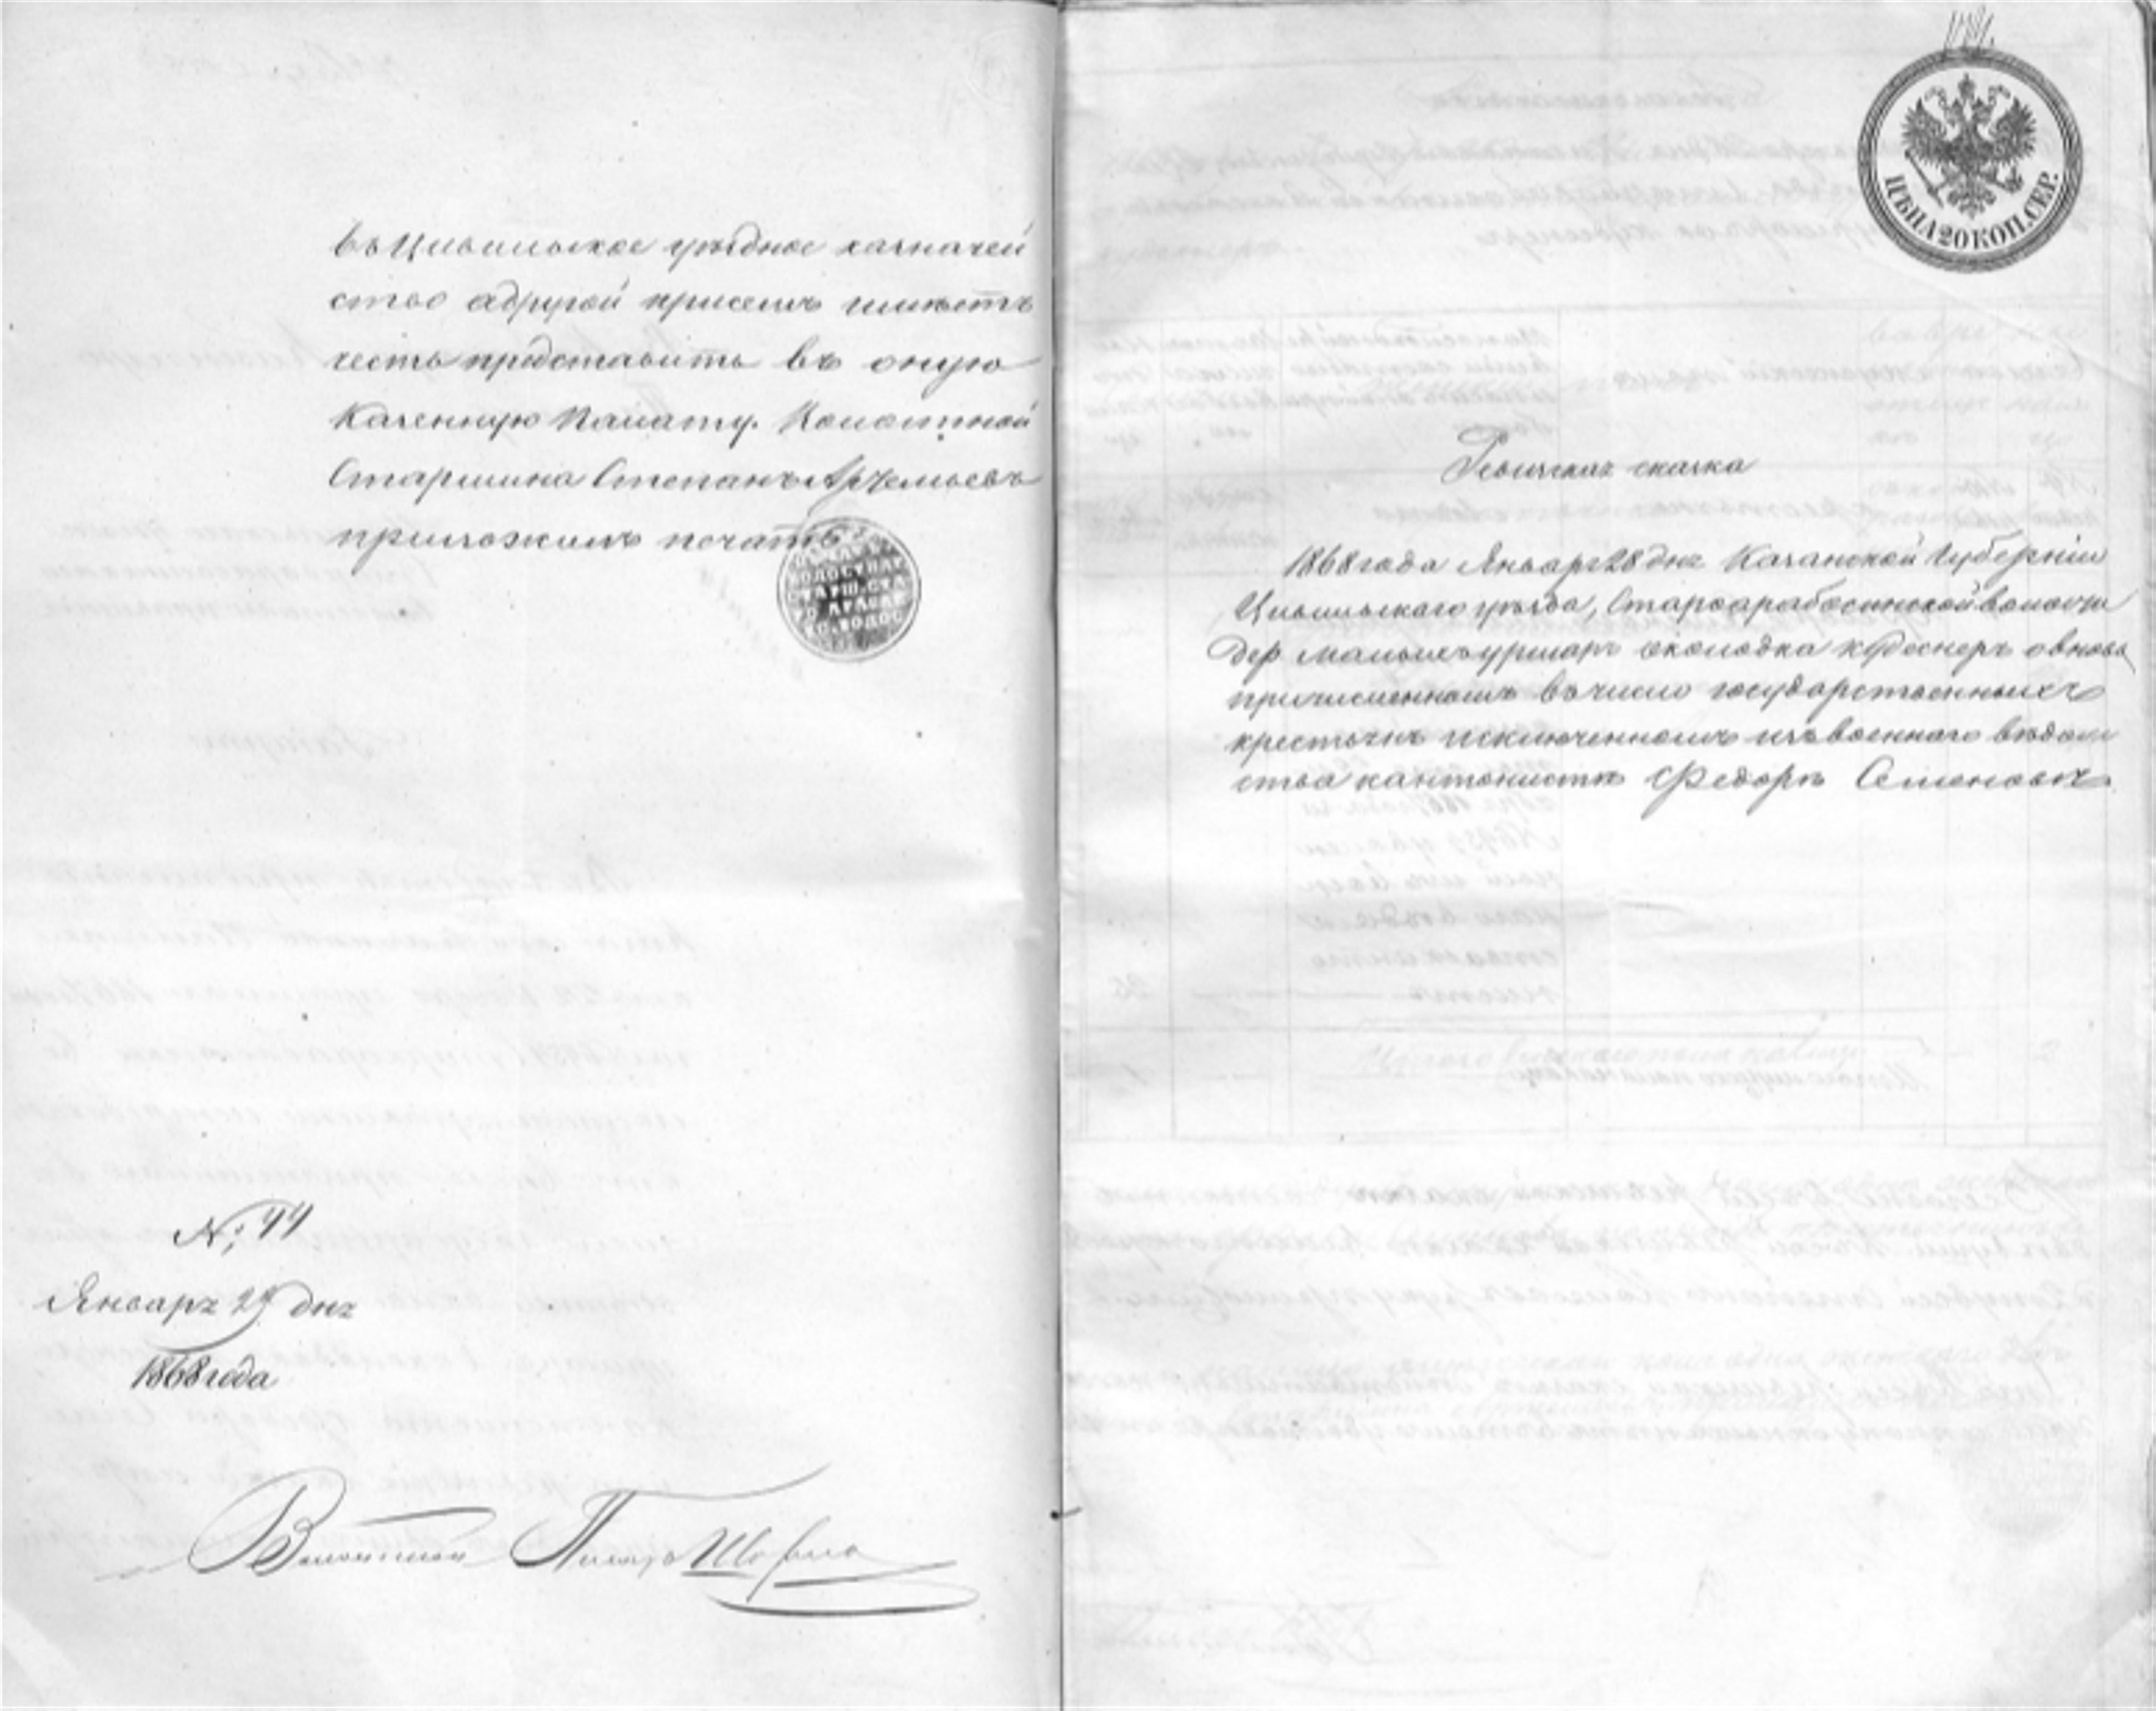 въ Цивильское уѣздное казначей
ство а другой присемъ имѣетъ
честь представить въ оную
Казенную Палату. Волостной
Старшина Степанъ Артемьевъ
приложилъ печать
№ 44
Января 29 дня
1868 года
Волостной Писарь
ЦѢНА 20 КОП. СЕР.
Ревизская сказка
1868 года Января 28 дня Казанской Губерніи
Цивильскаго уѣзда, Староарабосинской волости
дер Малыхъ уршаръ околодка кудеснеръ о вновь
причисленномъ въ число государственныхъ
крестьянъ исключенномъ изъ военнаго вѣдом
ства кантонистѣ Федорѣ Семеновѣ